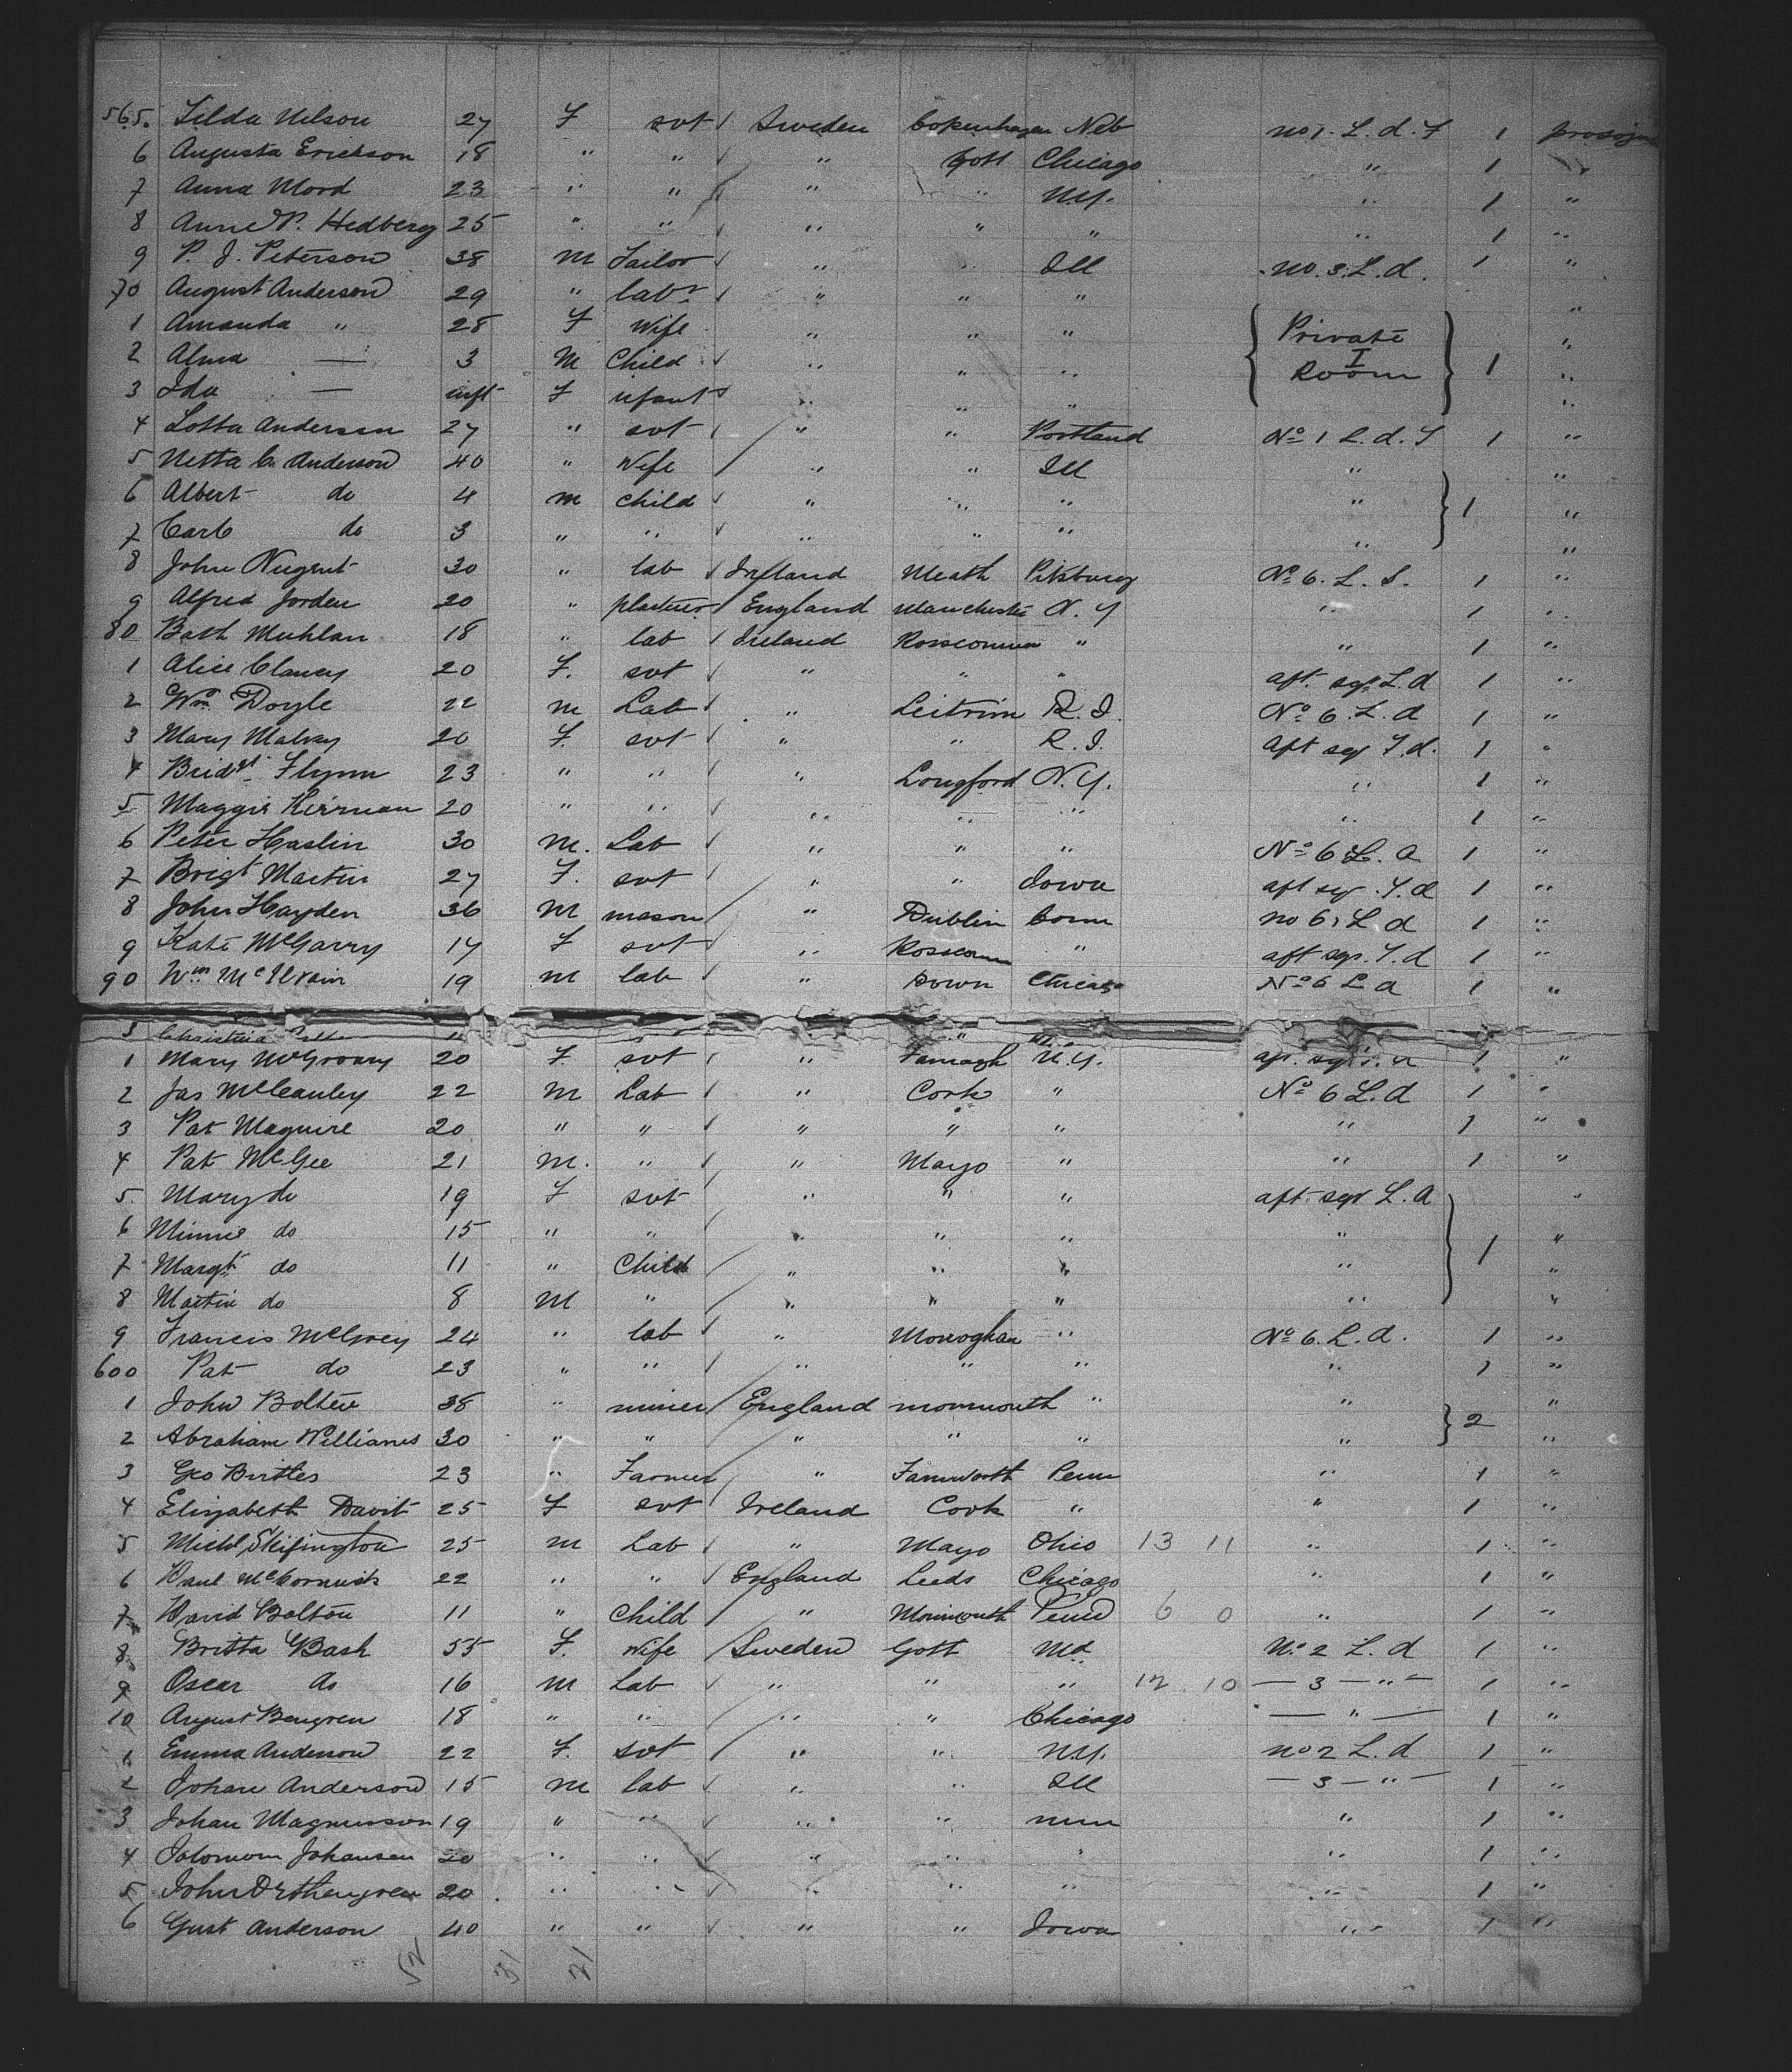 565. Tilda Nelson 27 F svt Sweden Copenhagen Neb no 1. L. d. F 1
6 Augusta Erickson 18 " " " Gott Chicago " 1 "
7 Anna Mord 23 " " " " N.Y. " 1 "
8 Anne P. Hedberg 25 " " " " " " 1 "
9 P. J. Peterson 38 M Tailor " " Ill no. 3. L. d. 1 "
70 August Anderson 29 " labr " " " "
1 Amanda " 28 F Wife " " " Private "
2 Alma — 3 M Child " " " I Room 1 "
3 Ida — inft F infant " " " "
4 Lotta Anderson 27 " svt " " Portland No 1 L. d. F 1 "
5 Netta C. Anderson 40 " Wife " " Ill " "
6 Albert do 4 m child " " " " 1 "
7 Carl do 3 " " " " " " "
8 John Nugent 30 " lab Ireland Meath Pitsburg No 6. L. S. 1 "
9 Alfred Jorden 20 " plasterer England Manchester N. Y " 1 "
80 Bath 18 " lab Ireland Roscommon " " 1 "
1 Alice Clancy 20 F. svt " " " aft. sgr L. d 1 "
2 Wm Doyle 22 m Lab " Leitrim R. I. No 6. L. d 1 "
3 Mary Malvey 20 F. svt " " R. I. aft sgr L. d. 1 "
4 Bridgt. Flynn 23 " " " Longford N. Y. " 1 "
5 Maggie Kiernan 20 " " " " " " 1 "
6 Peter Haslin 30 M. Lab " " " No 6 L. d 1 "
7 Brigt Martin 27 F. svt " " Iowa aft sgr. L. d 1 "
8 John Hayden 36 M mason " Dublin Conn no 6, L d 1 "
9 Kate McGarry 17 F svt " Roscom " aft sgr. L. d 1 "
90 Wm McIlvain 19 m lab " Down Chicago No 6 L d 1 "
3 Christina
1 Mary McGroary 20 F. svt " N.Y. 1 "
2 Jas McCauley 22 M Lab " Cork " No 6 L. d 1 "
3 Pat Maguire 20 " " " " " " 1 "
4 Pat McGee 21 M. " " Mayo " " 1 "
5. Mary do 19 F svt " " " aft sgr L. d "
6 Minnie do 15 " " " " " " 1 "
7 Margt do 11 " Child " " " " "
8 Martin do 8 M " " " " " "
9 Francis McGrey 24 " lab " Monoghan " No 6. L. d. 1 "
600 Pat do 23 " " " " " " 1 "
1 John Bolten 38 " miner England monmouth " " "
2 Abraham Williams 30 " " " " " " 2 "
3 Geo Birtles 23 " Farmer " Farnworth Penn " 1 "
4 Elizabeth Davit 25 F svt Ireland Cork " " 1 "
5 Michl Skifington 25 m Lab " Mayo Ohio 13 11 " 1 "
6 Danl McCormick 22 " " England Leeds Chicago " 1 "
7 David Bolton 11 " child " Monmouth Penn 6 0 " 1 "
8 Britta Bask 55 F. Wife Sweden Gott Md No 2 L. d 1 "
9 Oscar do 16 m Lab " " " 12 10 — 3 — " — 1 "
10 August Bengren 18 " " " " Chicago — " — 1 "
1 Emma Anderson 22 F. svt " " N.Y. no 2 L. d 1 "
2 Johan Anderson 15 m lab " " Ill — 3 — " — 1 "
3 Johan Magnusson 19 " " " " " 1 "
4 Solomom Johansen 20 " " " " " " 1 "
5 John 20 " " " " " " 1 "
6 Gust Anderson 40 " " " " Iowa " 1 "
52 31 21